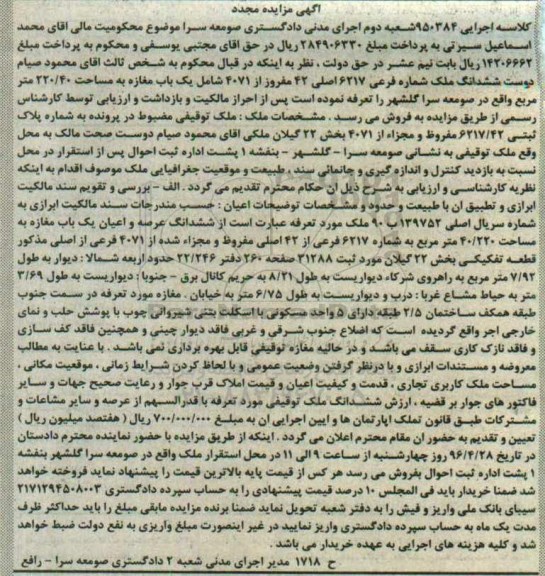 آگهی مزایده مجدد
کلاسه اجرایی ۹۵۰۳۸۴شعبه دوم اجرای مدنی دادگستری صومعه سرا موضوع محکومیت مالی اقای محمد
اسماعیل سیرتی به پرداخت مبلغ ۲۸۴۹۰۶۳۳۰ ریال در حق اقای مجتبی یوسفی و محکوم به پرداخت مبلغ
۱۴۲۰۶۶۶۲ ریال بابت نیم عشر در حق دولت ، نظر به اینکه در قبال محکوم به شخص ثالث اقای محمود صیام
دوست ششدانگ ملک شماره فرعی ۶۲۱۷ اصلی ۴۲ مفروز از ۴۰۷۱ شامل یک باب مغازه به مساحت ۲۲۰/۴۰ متر
مربع واقع در صومعه سرا گلشهر را تعرفه نموده است پس از احراز مالکیت و بازداشت و ارزیابی توسط کارشناس
رسمی از طریق مزایده به فروش می رسد . مشخصات ملک : ملک توقیفی مضبوط در پرونده به شماره پلاک
ثبتی ۶۲۱۷/۴۲مفروظ و مجزاء از ۴۰۷۱ بخش ۲۲ گیلان ملکی اقای محمود صیام دوست صحت مالک به محل
وقع ملک توقیفی به نشانی صومعه سرا - گلشهر - بنفشه ۱ پشت اداره ثبت احوال پس از استقرار در محل
نسبت به بازدید کنترل و اندازه گیری و جانمائی سند ، طبیعت و موقعیت جغرافیایی ملک موصوف اقدام به اینکه
نظریه کارشناسی و ارزیابی به شرح ذیل ان حکام محترم تقدیم می گردد . الف - بررسی و تقویم سند مالکیت
ابرازی و تطبیق ان با طبیعت و حدود و مشخصات توضیحات اعیان : حسب مندرجات سند مالکیت ابرازی به
شماره سریال اصلی ۱۳۹۷۵۲ب ۹۰ ملک مورد تعرفه عبارت است از ششدانگ عرصه و اعیان یک باب مغازه به
مساحت ۴۰/۲۲۰ متر مربع به شماره ۶۲۱۷ فرعی از ۴۲ اصلی مفروظ و مجزاء شده از ۴۰۷۱ فرعی از اصلی مذکور
قطعه تفکیکی بخش ۲۲ گیلان مورد ثبت ۳۱۲۸۸ صفحه ۲۶۰ دفتر ۲۲/۲۴۶ حدود اربعه شمالا : دیوار به طول
۷/۹۲ متر مربع به راهروی شرکاء دیواریست به طول ۸/۲۱ به حریم کانال برق - جنوبا : دیواریست به طول ۳/۶۹
متر به حیاط مشاع غربا : درب و دیواریست به طول ۶/۷۵ متر به خیابان . مغازه مورد تعرفه در سمت جنوب
طبقه همکف ساختمان ۲/۵ طبقه دارای ۵ واحد مسکونی با اسکلت بتنی شیروانی چوب با پوشش حلب و نمای
خارجی اجر واقع گردیده است که اضلاع جنوب شرقی و غربی فاقد دیوار چینی و همچنین فاقد کف سازی
و فاقد نازک کاری سقف می باشد و در حالیه مغازه توقیفی قابل بهره برداری نمی باشد . با عنایت به مطالب
معروضه و مستندات ابرازی و با درنظر گرفتن وضعیت عمومی و با لحاظ کردن شرایط زمانی ، موقعیت مکانی ،
مساحت ملک کاربری تجاری ، قدمت و کیفیت اعیان و قیمت املاک قرب جوار و رعایت صحیح جهات و سایر
فاکتور های جوار بر قضیه ، ارزش ششدانگ ملک توقیفی مورد تعرفه با قدرالسهم از عرصه و سایر مشاعات و
مشترکات طبق قانون تملک اپارتمان ها و ایین اجرایی ان به مبلغ ۷۰۰/۰۰۰/۰۰۰ ریال ( هفتصد میلیون ریال )
تعیین و تقدیم به حضور ان مقام محترم اعلان می گردد . اینکه از طریق مزایده با حضور نماینده محترم دادستان
در تاریخ ۹۶/۴/۲۸ روز چهارشنبه از ساعت ۹ الی ۱۱ در محل استقرار ملک واقع در صومعه سرا گلشهر بنفشه
۱ پشت اداره ثبت احوال بفروش می رسد هر کس از قیمت پایه بالاترین قیمت را پیشنهاد نماید فروخته خواهد
شد ضمنا خریدار باید فی المجلس ۱۰ درصد قیمت پیشنهادی را به حساب سپرده دادگستری ۲۱۷۱۲۹۴۵۰۸۰۰۳
سیبای بانک ملی واریز و فیش را به دفتر شعبه تحویل نماید ضمنا برنده مزایده مابقی مبلغ را باید حداکثر ظرف
مدت یک ماه به حساب سپرده دادگستری واریز نمایید در غیر اینصورت مبلغ واریزی به نفع دولت ضبط خواهد
شد و کلیه هزینه های اجرایی به عهده خریدار می باشد .
ح ۱۷۱۸ مدیر اجرای مدنی شعبه ۲ دادگستری صومعه سرا - رافع